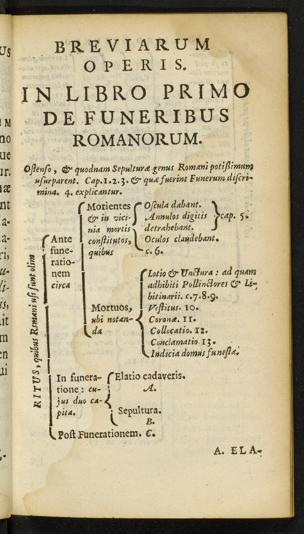 BREVIARUM
OPERIS.
IN LIBRO PRIMO
DE FUNERIBUS
ROMANORUM.
Ostenso, & quodnam Sepulturæ genus Romani potissimum
usurparent. Cap. 1. 2. 3. & quæ fuerint Funerum discri-
mina. 4. explicantur.
RITUS, quibus Romani usi sunt olim
Ante
fune-
ratio-
nem
circa
Morientes
& in vici-
nia mortis
constitutos,
quibus
Oscula dabant.
Annulos digitis
detrahebant.
Oculos claudebant.
c. 6.
cap. 5.
Mortuos,
ubi notan-
da
Lotio & Unctura: ad quam
adhibiti Pollinctores & Li-
bitinarii. c. 7. 8. 9.
Vestitus. 10.
Coronæ. 11.
Collocatio. 12.
Conclamatio. 13.
Indicia domus funestæ.
In funera-
tione: cu-
jus duo ca-
pita.
Elatio cadaveris.
A.
Sepultura.
B.
Post Funerationem. C.
A. ELA-